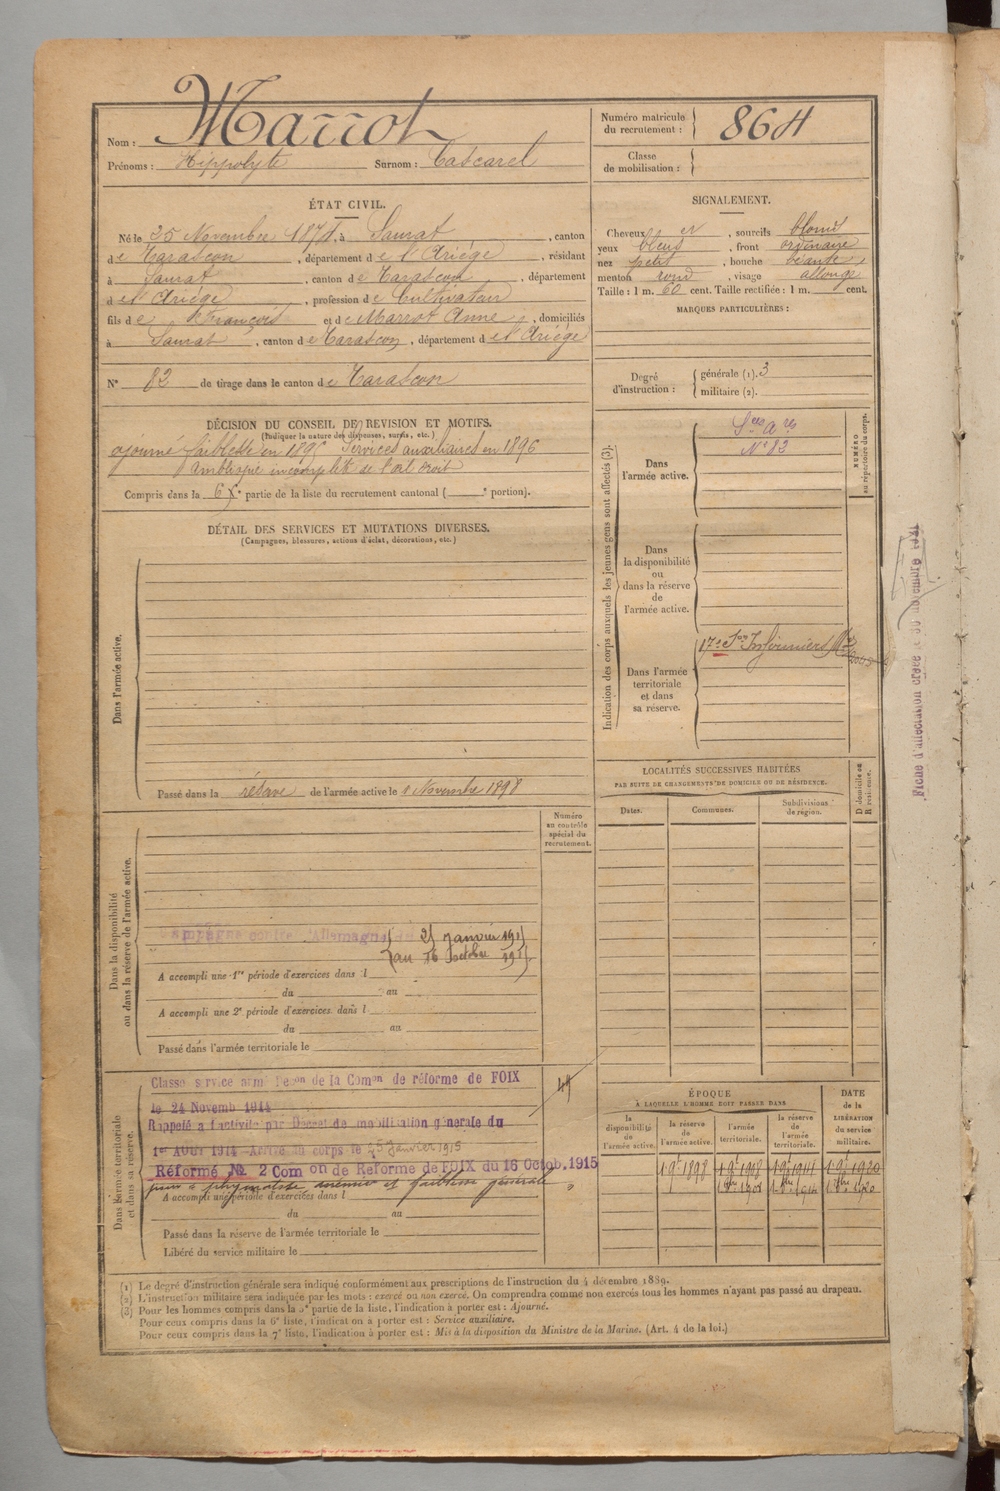 Nom : Marrot
Prénoms : Hippolyte Surnom : Cascarel
Numéro matricule du recrutement : 864
Classe de mobilisation :
ÉTAT CIVIL.
Né le 25 Novembre 1874, à Saurat, canton
de Tarascon, département de l'Ariège, résidant
à Saurat, canton de Tarascon, département
de l'Ariège, profession de Cultivateur
fils de François et de Marrot Anne, domiciliés
à Saurat, canton de Tarascon, département de l'Ariège
N° 82 de tirage dans le canton de Tarascon
SIGNALEMENT.
Cheveux et, sourcils blonds
yeux bleus, front ordinaire
nez petit, bouche béante,
menton rond, visage allongé
Taille : 1 m. 60 cent. Taille rectifiée : 1 m. cent.
MARQUES PARTICULIÈRES :
Degré d'instruction : générale (1). 3
militaire (2).
DÉCISION DU CONSEIL DE REVISION ET MOTIFS.
(Indiquer la nature des dispenses, sursis, etc.)
ajourné faiblesse en 1895 Services auxiliaires en 1896
Amblyopie incomplète de l'œil droit
Compris dans la 6e partie de la liste du recrutement cantonal ( e portion).
DÉTAIL DES SERVICES ET MUTATIONS DIVERSES.
(Campagnes, blessures, actions d'éclat, décorations, etc.)
Dans l'armée active.
Passé dans la réserve de l'armée active le 1 Novembre 1898
Indication des corps auxquels les jeunes gens sont affectés (3).
NUMÉRO au répertoire du corps.
Dans l'armée active.
N° 82
Dans la disponibilité ou dans la réserve de l'armée active.
Dans l'armée territoriale et dans sa réserve.
17e Son Infirmiers
Fiche d'affectation créée le novembre
LOCALITÉS SUCCESSIVES HABITÉES
PAR SUITE DE CHANGEMENTS DE DOMICILE OU DE RÉSIDENCE.
Dates. Communes. Subdivisions de région. D domicile ou R résidence.
Numéro au contrôle spécial du recrutement.
Dans la disponibilité ou dans la réserve de l'armée active.
Campagne contre l'Allemagne du 25 janvier 1915
au 16 octobre 1915
A accompli une 1re période d'exercices dans l
du au
A accompli une 2e période d'exercices dans l
du au
Passé dans l'armée territoriale le
Dans l'armée territoriale et dans sa réserve.
Classé service armé Deson de la Comon de réforme de FOIX
le 24 Novemb 1914
Rappelé à l'activité par Décret de mobilisation générale du
1er Août 1914 Arrivé au corps le 25 janvier 1915
Réformé No. 2 Com on de Reforme de FOIX du 16 Octob. 1915
pour anémie et faiblesse générale
A accompli une période d'exercices dans l
du au
Passé dans la réserve de l'armée territoriale le
Libéré du service militaire le
ÉPOQUE
A LAQUELLE L'HOMME DOIT PASSER DANS
la disponibilité de l'armée active. la réserve de l'armée active. l'armée territoriale. la réserve de l'armée territoriale.
DATE de la LIBÉRATION du service militaire.
1 9e 1898 1 9e 1908 1 9e 1914 1 9e 1920
(1) Le degré d'instruction générale sera indiqué conformément aux prescriptions de l'instruction du 4 décembre 1889.
(2) L'instruction militaire sera indiquée par les mots : exercé ou non exercé. On comprendra comme non exercés tous les hommes n'ayant pas passé au drapeau.
(3) Pour les hommes compris dans la 5e partie de la liste, l'indication à porter est : Ajourné.
Pour ceux compris dans la 6e liste, l'indication à porter est : Service auxiliaire.
Pour ceux compris dans la 7e liste, l'indication à porter est : Mis à la disposition du Ministre de la Marine. (Art. 4 de la loi.)